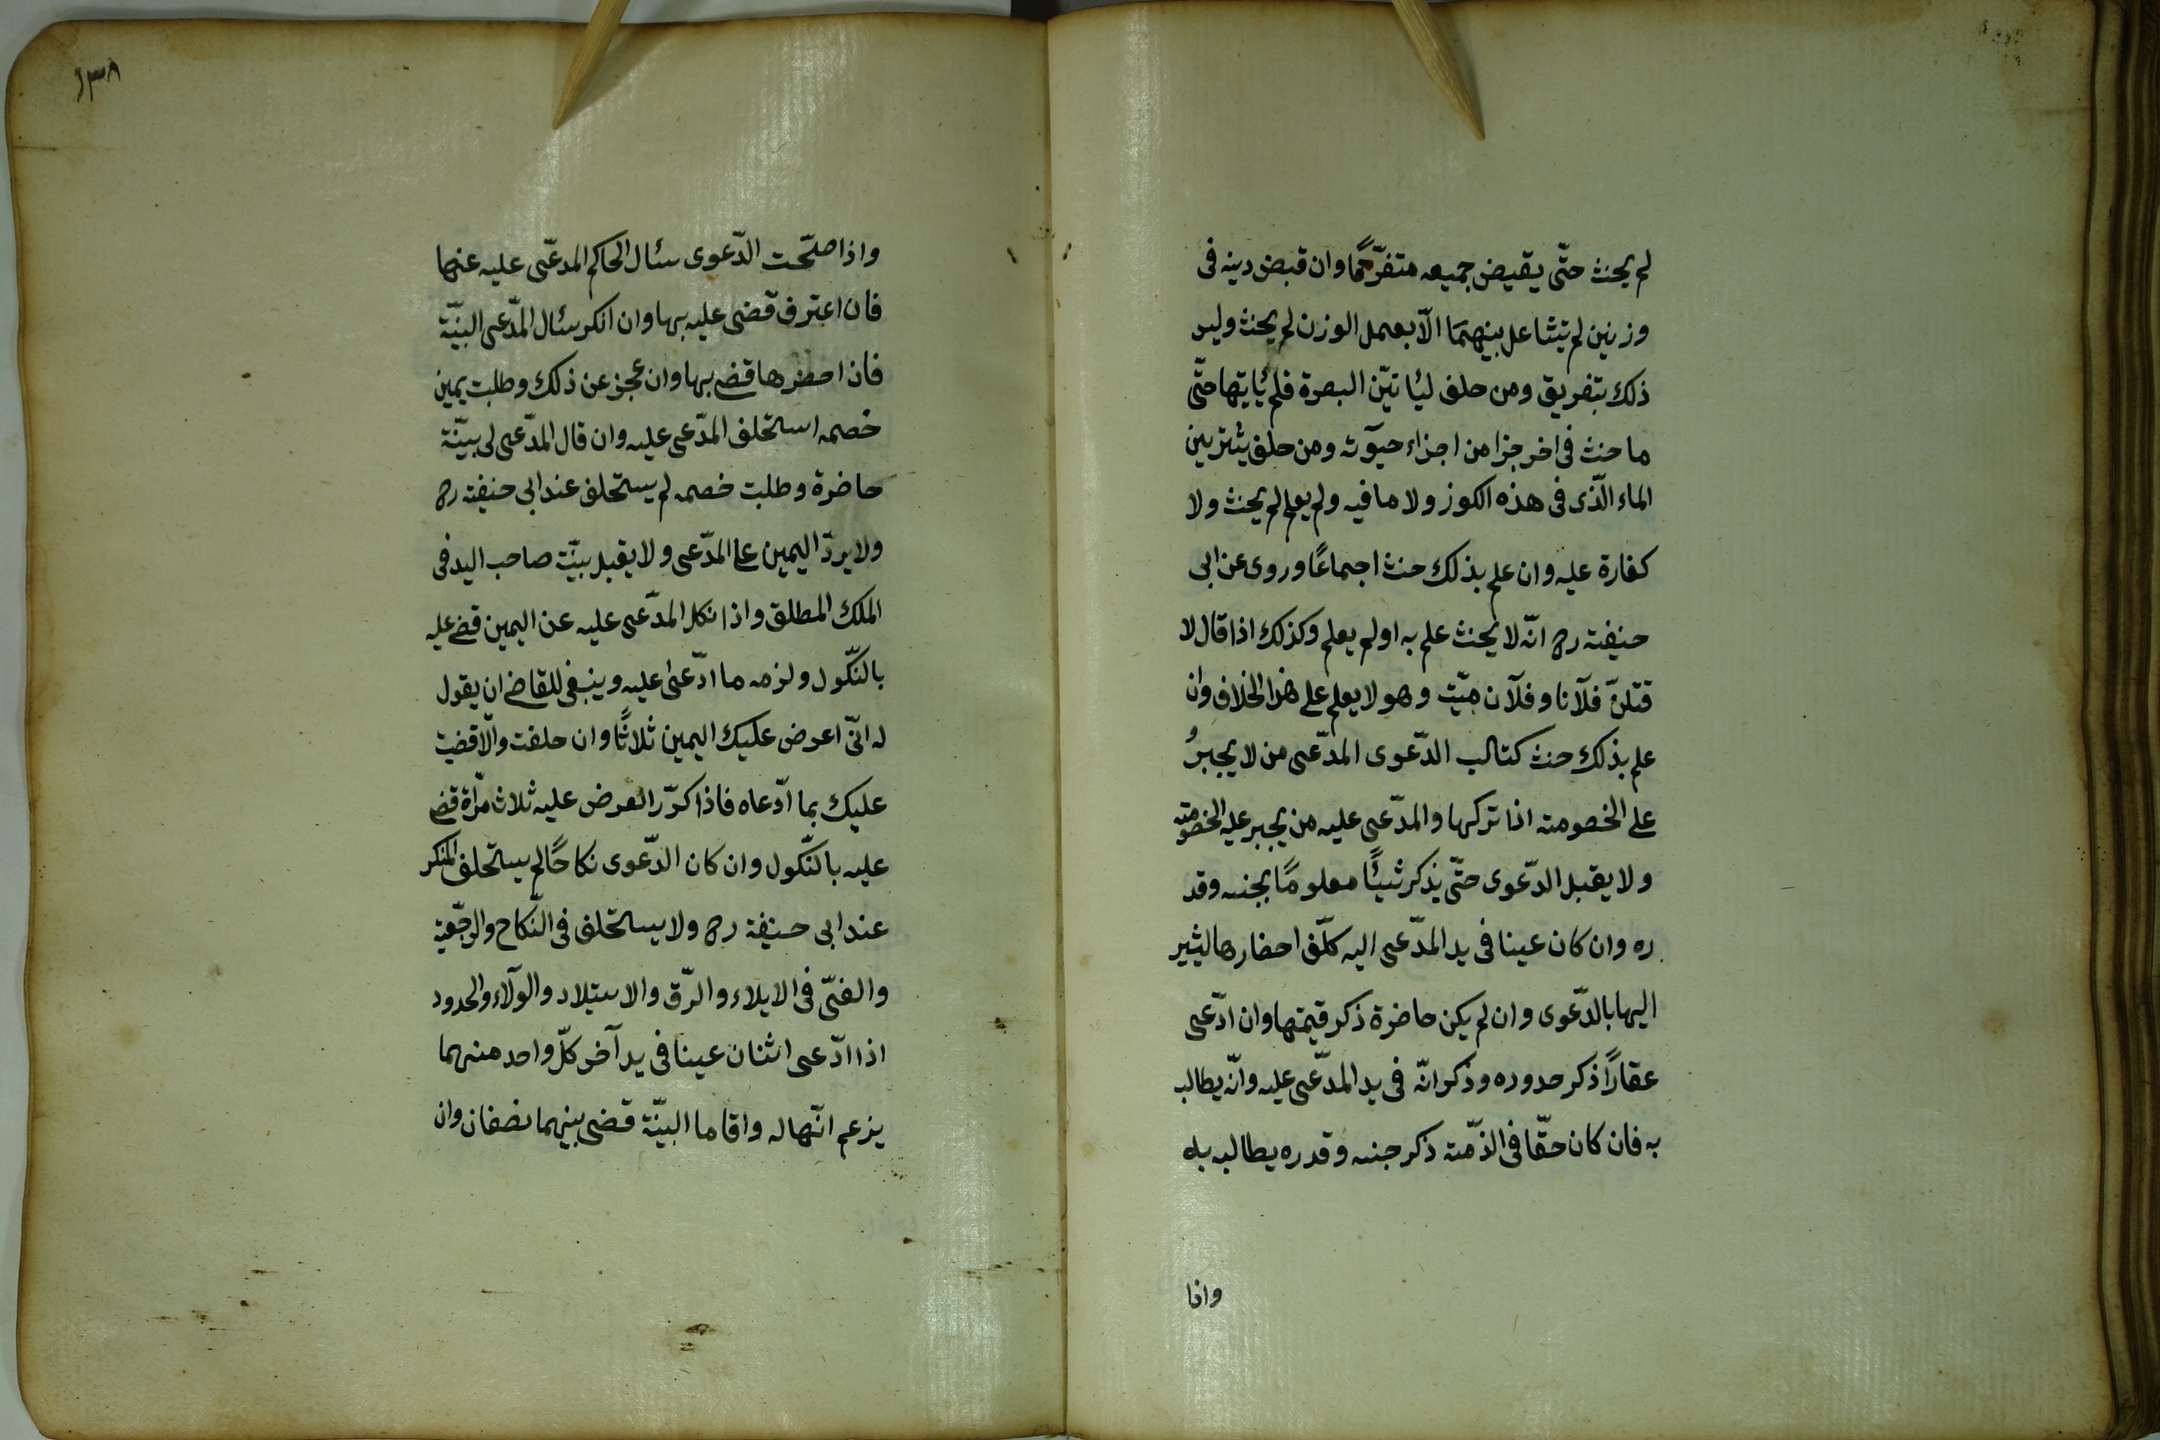 لم يحنث حتّى يقيض جميعه متفرّقًا وان قبض دينه فى
وزنين لم يتشاعل بينهما الّا بعمل الوزن لم يحنث وليس
ذلك بتفريق ومن حلف ليأتيّن البصرة فلم يأتها حتّى
ما حنث فى اخر جزا من اجزاء حيوته ومن حلف يشربن
الماء الّذى فى هذه الكوز ولا ما فيه ولم يعلم لم يحنث ولا
كفارة عليه وان علم بذلك حنث اجماعًا وروى عن ابى
حنيفته رح انّه لا يحنث علم به اولم يعلم وكذلك اذا قال لا
قتلنّ فلآنا وفلآن ميّت وهو لا يعلم على هذا الخلاف وان
علم بذلك حنث كتالب الدّعوى المدّعى من لا يجبرُ
على الخصومته اذا تركها والمدّعى عليه من يجبر عليه الخصومته
ولا يقبل الدّعوى حتّى يذكر شيئًا معلومًا بجنسه وقد
ره وان كان عينا فى يد المدّعى اليه كلّف احضارها ليثير
اليها بالدّعوى وان لم يكن حاضرة ذكر قيمتها وان ادّعى
عقارًا ذكر حدوده وذكر انّه فى يد المدّعى عليه وانّه يطالب
به فان كان حقّا فى الذّمته ذكر جنسه وقدره يطالبه بله
واذا
١٣٨
واذا صلّحت الدّعوى سئال الحاكم المدعّى عليه عنها
فان اعترف قضى عليه بها وان انكر سئال المدّعى البيّنة
فان احضرها قضى بها وان عجز عن ذلك وطلبت يمين
خصمه استحلف المدّعى عليه وان قال المدّعى لى بيّنة
حاضرة وطلبت خصمه لم يستحلف عند ابى حنيفته رح
ولا يردّ اليمين على المدّعى ولا يقبل بيّنة صاحب اليد فى
الملك المطلق واذا نكل المدّعى عليه عن اليمين قضى عليه
بالنّكول ولزمه ما ادّعى عليه وينبغى للقاضى ان يقول
له انّى اعرض عليك اليمين ثلاثًا وان حلفت والّا قضيت
عليك بما ادّعاه فاذا كرّر العرض عليه ثلاث مرّاة قضى
عليه بالنّكول وان كان الدّعوى نكاحًا لم يستحلف المنكر
عند ابى حنيفة رح ولا يستحلف فى النّكاح والرجّعة
والفىّ فى الايلاء والرّق والاستيلاد والولآء والحدود
اذا ادّعى اثنان عينا فى يد آخر كلّ واحد منهما
يزعم انّها له واقاما البيّنة قضى بينهما نصفان وان